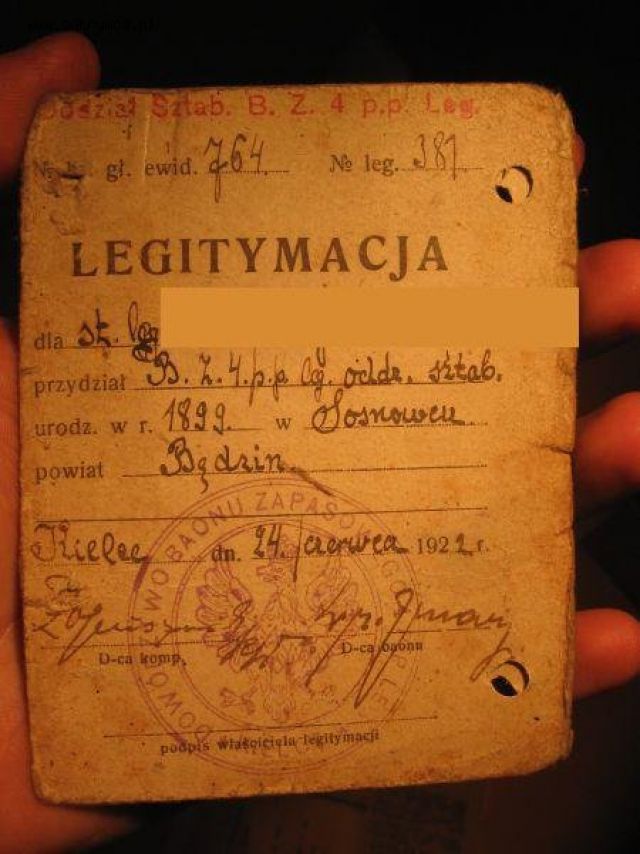 Oddział Sztab. B. Z. 4 p.p. Leg.
gł. ewid. 764. № leg. 381
LEGITYMACJA
dla st. leg
przydział B. Z. 4. p. p. lg. oddz. sztab.
urodz. w r. 1899. w Sosnowcu
powiat Będzin.
Kielce dn. 24. czerwca 1922 r.
D-ca komp. D-ca baonu
podpis właściciela legitymacji
DOWÓDZTWO BAONU ZAPASOWEGO